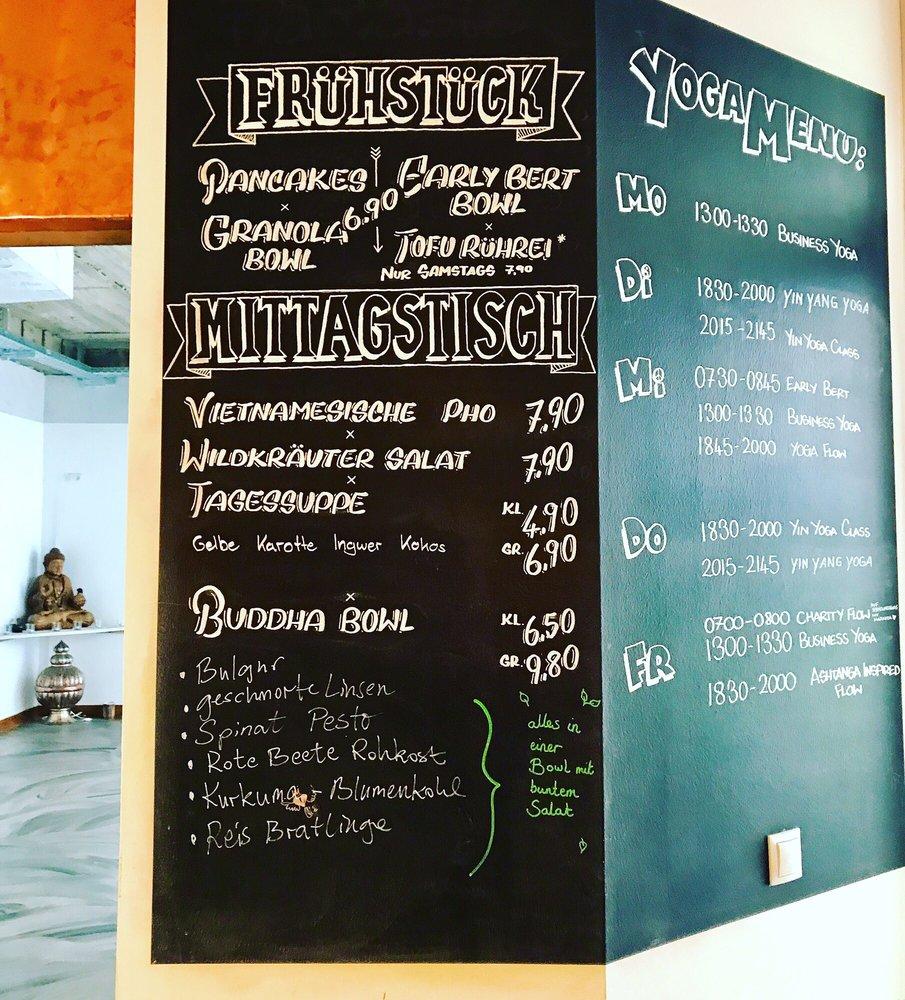 FRÜHSTÜCK
PANCAKES
×
GRANOLA
BOWL
6.90
EARLY BERT
BOWL
×
TOFU RÜHREI*
NUR SAMSTAGS 7,90
MITTAGSTISCH
VIETNAMESISCHE PHO 7.90
×
WILDKRÄUTER SALAT 7.90
×
TAGESSUPPE KL. 4.90
Gelbe Karotte Ingwer Kokos GR. 6.90
×
BUDDHA BOWL KL. 6.50
GR. 9.80
• Bulgur
• geschmorte Linsen
• Spinat Pesto
• Rote Beete Rohkost
• Kurkuma - Blumenkohl
• Reis Bratlinge
alles in
einer
Bowl mit
buntem
Salat
YOGA MENU:
MO
1300-1330 BUSINESS YOGA
Di
1830-2000 YIN YANG YOGA
2015-2145 YIN YOGA CLASS
Mi
0730-0845 EARLY BERT
1300-1330 BUSINESS YOGA
1845-2000 YOGA FLOW
DO
1830-2000 YIN YOGA CLASS
2015-2145 YIN YANG YOGA
FR
0700-0800 CHARITY FLOW
1300-1330 BUSINESS YOGA
1830-2000 ASHTANGA INSPIRED
FLOW